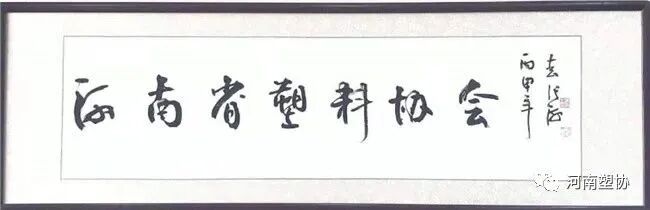 河南省塑料协会
丙申年
河南塑协